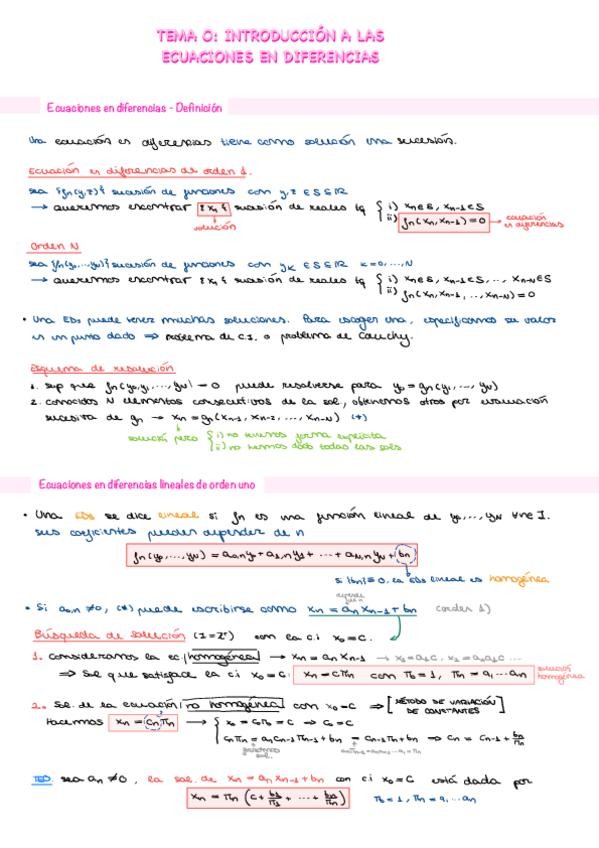 TEMA 0: INTRODUCCIÓN A LAS
ECUACIONES EN DIFERENCIAS
Ecuaciones en diferencias - Definición
Una ecuación en diferencias tiene como solución una sucesión.
Ecuación en diferencias de orden 1.
sea {fn(y,z)} sucesión de funciones con y,z ∈ S ⊆ ℝ
→ queremos encontrar {xn} sucesión de reales tq { i) xn∈S, xn-1∈S
ii) fn(xn, xn-1) = 0 → ecuación en diferencias
solución
Orden N
sea {fn(y0,...,yN)} sucesión de funciones con yk ∈ S ⊆ ℝ k=0,...,N
→ queremos encontrar {xn} sucesión de reales tq { i) xn∈S, xn-1∈S, ..., xn-N∈S
ii) fn(xn, xn-1, ..., xn-N) = 0
• Una EDs puede tener muchas soluciones. Para escoger una, especificamos su valor
en un punto dado ⇒ problema de C.I. o problema de Cauchy.
Esquema de resolución
1. sup que fn(y0,y1,...,yN) = 0 puede resolverse para y0 = gn(y1,...,yN)
2. conocidos N elementos consecutivos de la sol, obtenemos otros por evaluación
sucesiva de gn → xn = gn(xn-1, xn-2, ..., xn-N) (*)
solución pero { i) no tenemos forma explícita
ii) no hemos dado todas las sols
Ecuaciones en diferencias lineales de orden uno
• Una EDs se dice lineal si fn es una función lineal de y0,...,yN ∀n∈I.
sus coeficientes pueden depender de n
fn(y0,...,yN) = a0,n y0 + a1,n y1 + ... + aN,n yN + bn
si {bn} ≡ 0, la EDs lineal es homogénea
• Si a0,n ≠ 0, (*) puede escribirse como xn = an xn-1 + bn (orden 1)
Búsqueda de solución (I = Z+) con la c.i x0 = C.
1. Consideramos la ec. homogénea → xn = an xn-1 → x1 = a1C, x2 = a2a1C ...
⇒ Sol que satisface la ci x0 = C: xn = CΠn con Π0 = 1, Πn = a1...an solución homogénea
2. Sol. de la ecuación no homogénea con x0 = C ⇒ [MÉTODO DE VARIACIÓN
DE CONSTANTES]
Hacemos xn = CnΠn → { x0 = C0Π0 = C ⇒ C0 = C
CnΠn = anCn-1Πn-1 + bn = Cn-1Πn + bn ⇒ Cn = Cn-1 + bn/Πn
TEO. sea an ≠ 0, la sol. de xn = an xn-1 + bn con ci x0 = C está dada por
xn = Πn (C + b1/Π1 + ... + bn/Πn) Π0 = 1, Πn = a1...an